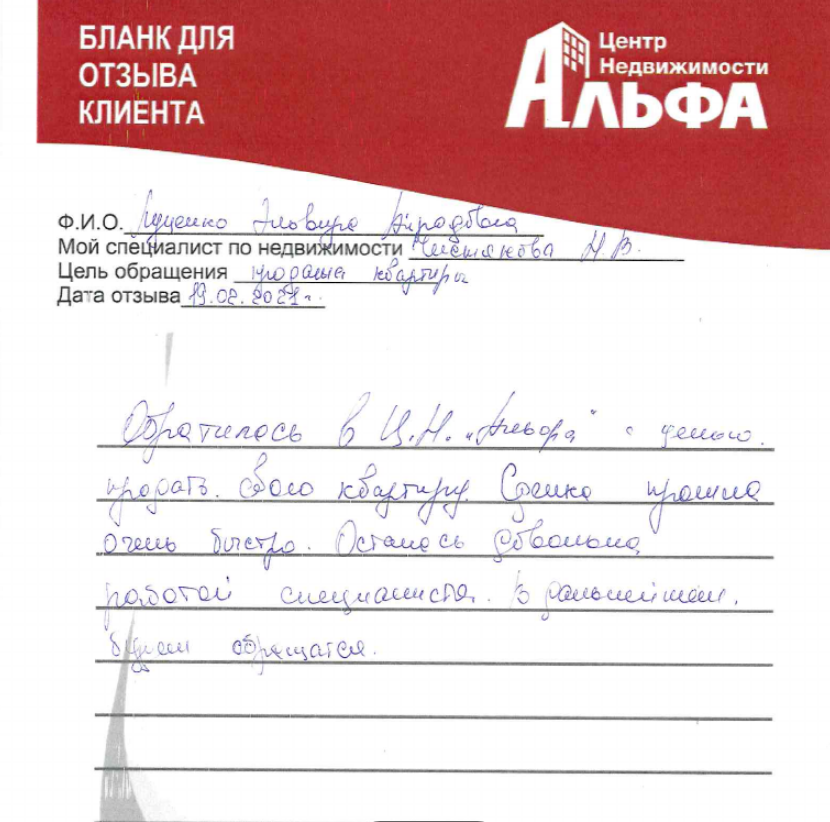 БЛАНК ДЛЯ
ОТЗЫВА
КЛИЕНТА
Центр
Недвижимости
АЛЬФА
Ф.И.О. Луценко Эльвира
Мой специалист по недвижимости Чистякова Н.В.
Цель обращения продажа квартиры
Дата отзыва 19.02.2021г.
Обратилась в Ц.Н. „Альфа“ с целью.
продать. свою квартиру. Сделка прошла
очень быстро. Осталась довольна
работой специалиста. В дальнейшем.
будем обращатся.